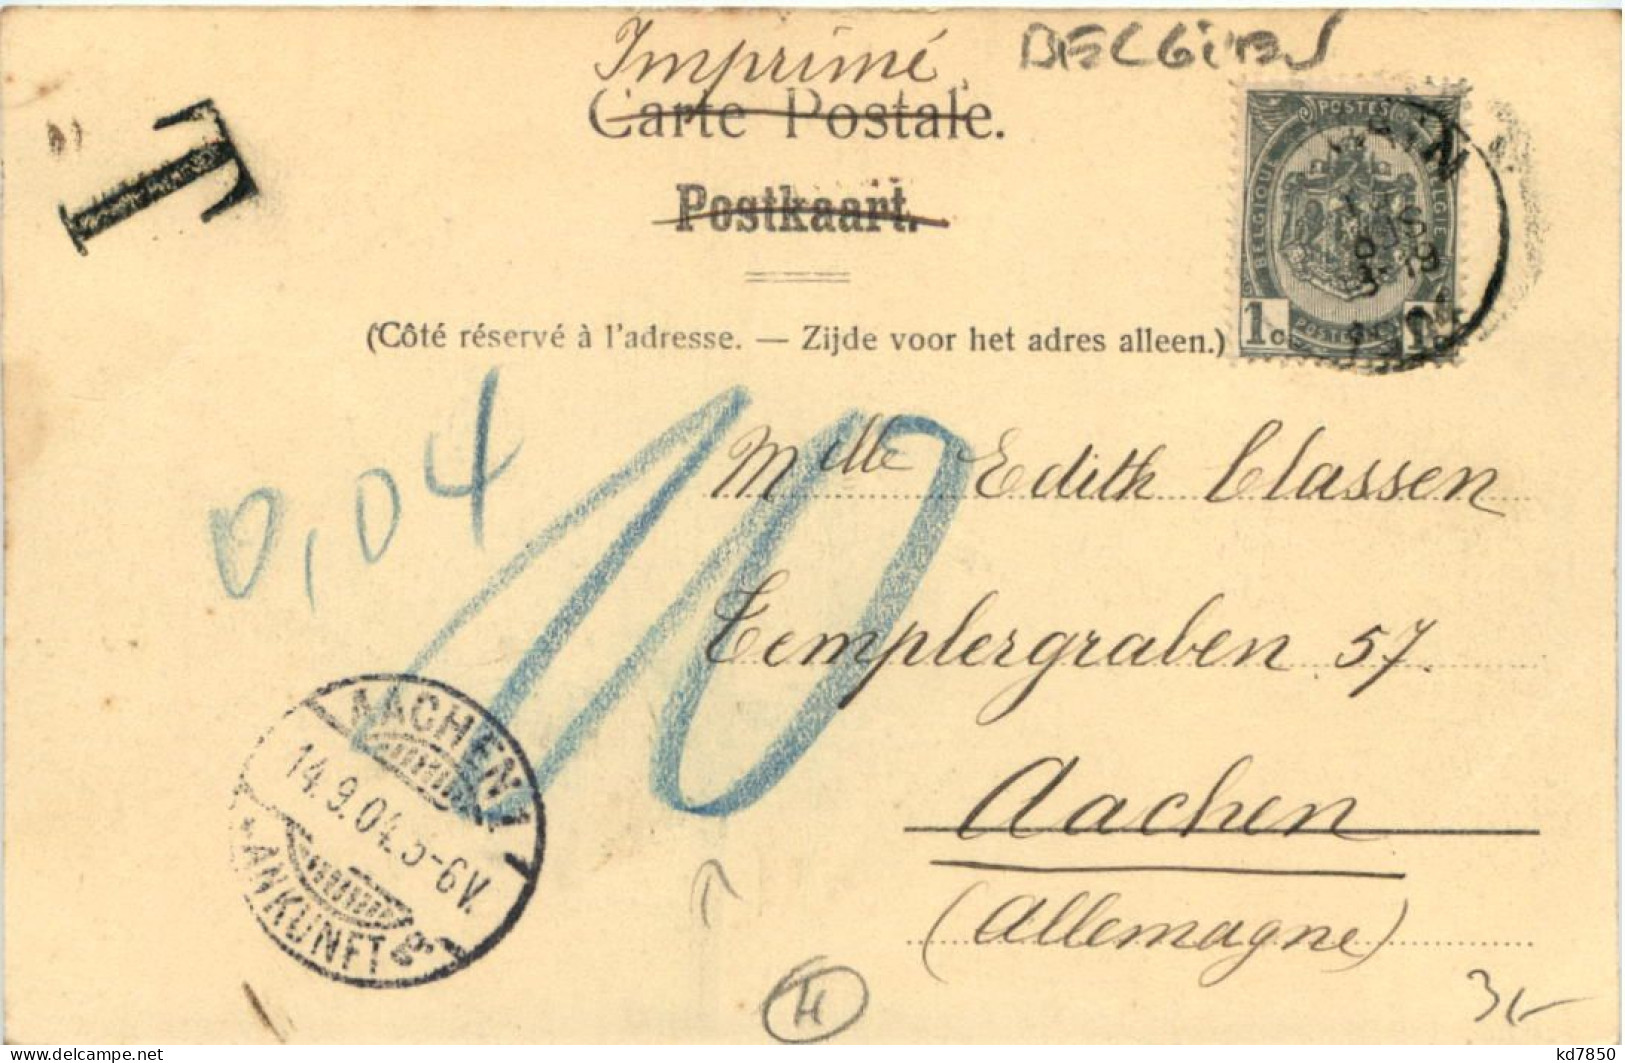 Imprimé
BELGIEN
Carte Postale.
Postkaart.
T
POSTES
BELGIQUE
BELGIE
1c
POSTERIJEN
(Côté réservé à l'adresse. — Zijde voor het adres alleen.)
0,04
10
Mlle Edith Classen
Templergraben 57.
Aachen
(Allemagne)
AACHEN 1
14.9.04.5-6V.
ANKUNFT
H
3,-
kd7850